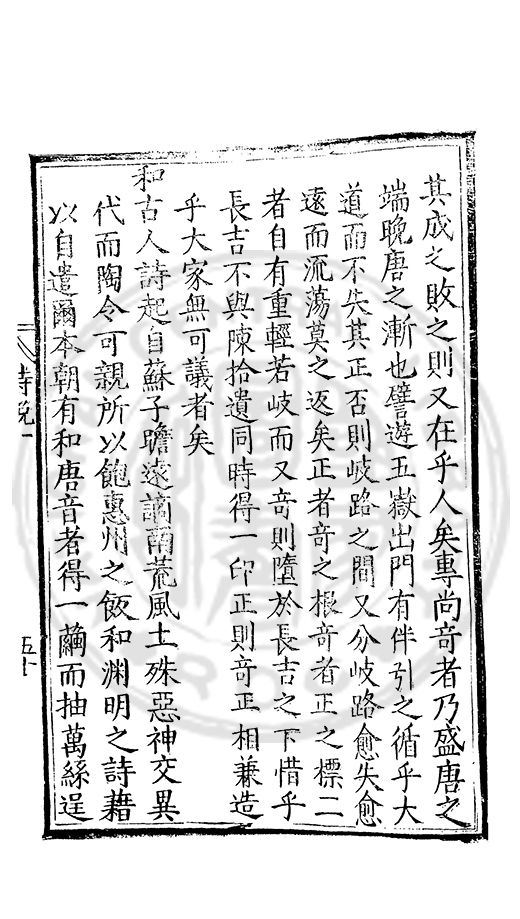 其成之敗之則又在乎人矣專尚奇者乃盛唐之
端晚唐之漸也譬遊五嶽出門有伴引之循乎大
道而不失其正否則岐路之間又分岐路愈失愈
遠而流蕩莫之返矣正者奇之根奇者正之標二
者自有重輕若岐而又奇則墮於長吉之下惜乎
長吉不與陳拾遺同時得一印正則奇正相兼造
乎大家無可議者矣
和古人詩起自蘇子瞻遠謫南荒風土殊惡神交異
代而陶令可親所以飽惠州之飯和淵明之詩藉
以自遣爾本朝有和唐音者得一繭而抽萬絲逞
詩說一
五十